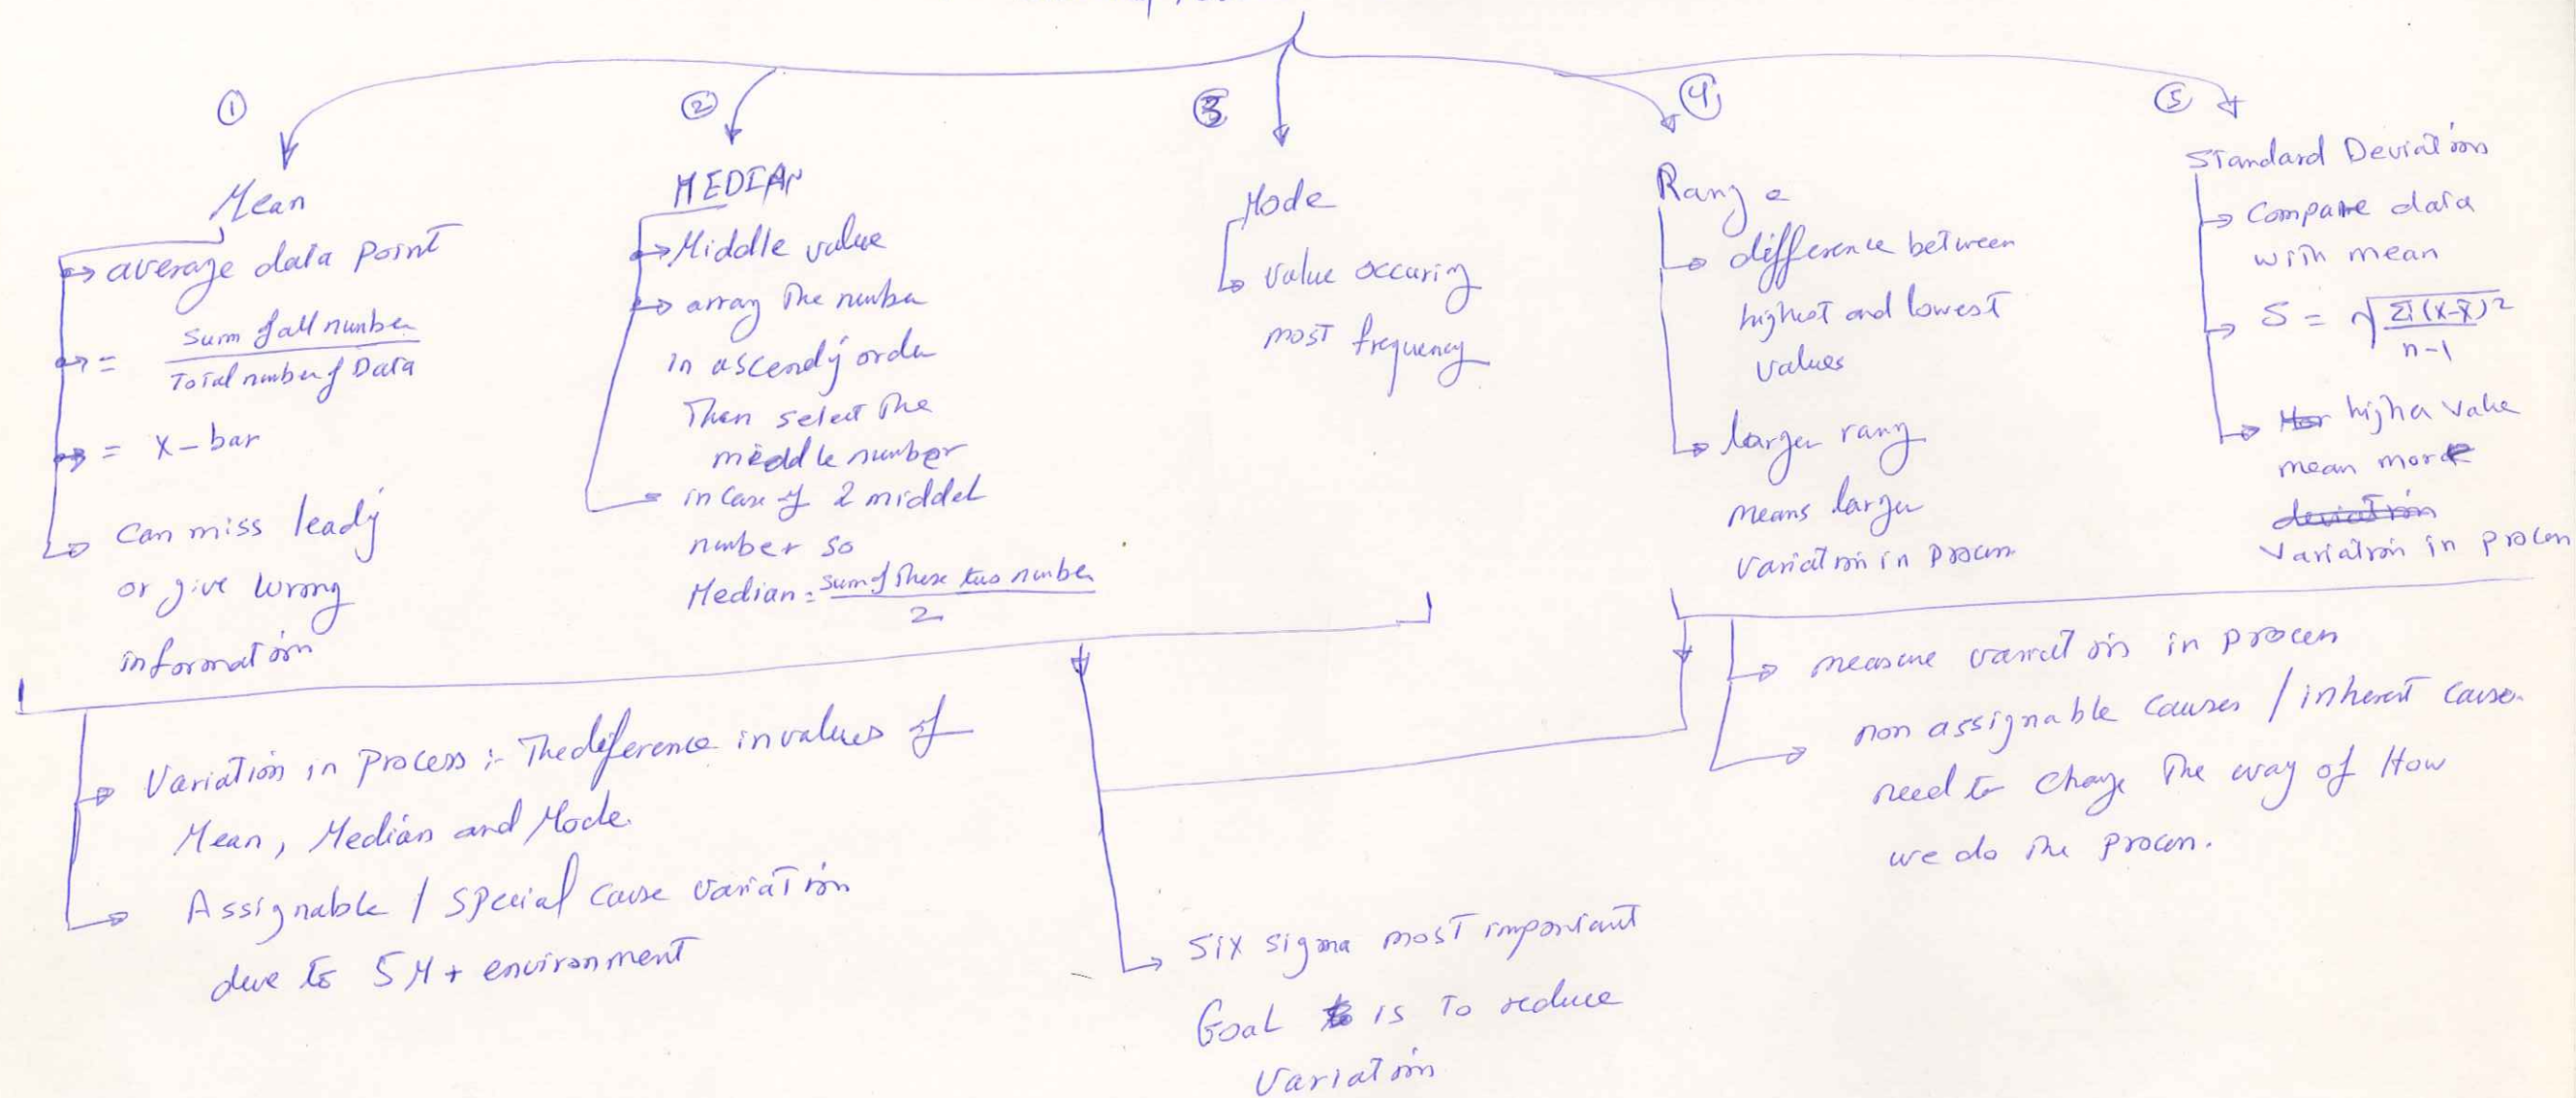 ①
Mean
average data point
= Sum of all number
Total number of Data
= X - bar
Can miss leady
or give wrong
information
②
MEDIAN
Middle value
array the number
in ascendy order
Then select the
middle number
in case of 2 middel
number so
Median = sum of these two number
2
③
Mode
value occuring
most frequency
④
Range
difference between
highest and lowest
values
larger rang
means larger
variation in process
⑤
Standard Deviation
Compare data
with mean
S = √ Σ(x-x̄)²
n-1
higher value
mean more
deviation
Variation in process
Variation in process :- The diference in values of
Mean, Median and Mode.
Assignable / special cause variation
due to 5M + environment
measure variation in process
non assignable causes / inherent cause.
need to change the way of How
we do the process.
Six sigma most important
Goal is to reduce
Variation